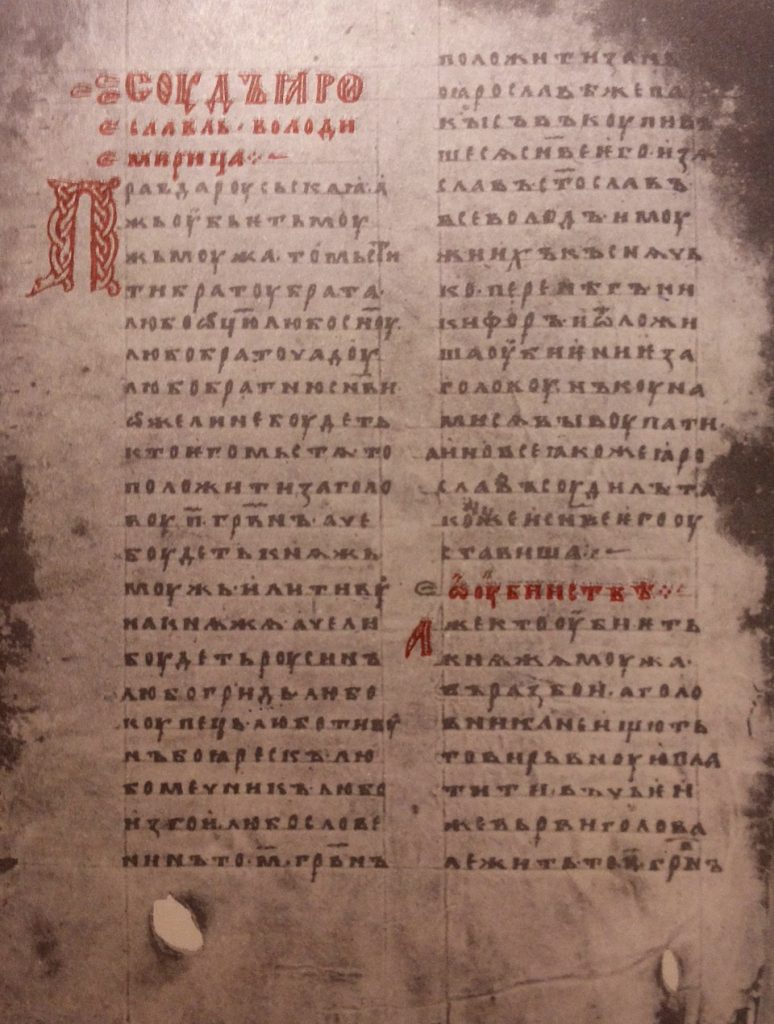 СОУДЪ ꙖРО
СЛАВЛЬ · ВОЛОДИ
МИРИЦА ⁘
Правда роусьскаꙗ · а
жь оубьѥть моу
жь моужа · то мьстї
ти братоу брата ·
любо ѡцю любо сн҃оу ·
любо братоучадоу
любо братню сн҃ви
ѡже ли не боудеть
кто ѥго мьстѧ то
положити за голо
воу · п҃ · грв҃нъ · аче
боудеть кнѧжь
моужь · или тивоу
на кнѧжѧ · аче ли
боудеть роусинъ
любо гридь · любо
коупець · любо тивоу
нъ боꙗрескъ · лю
бо мечникъ · любо
изгои · любо слове
нинъ то · м҃ · грв҃нъ
положити за нь
по ꙗрославѣ же па
кы съвъкоупивъ
шесѧ сн҃ве ѥго · изѧ
славъ ст҃ославъ
всеволодъ · и моу
жи ихъ къснѧчь
ко · перенѣгъ ни
кифоръ · и ѿложи
ша оубиѥниѥ за
головоу · нъ коуна
ми сѧ выкоупати ·
а ино все ꙗкоже ꙗро
славъ соудилъ · та
коже и сн҃ве ѥго оу
ставиша ⁘
ѡ оубииствѣ ⁘
Аже кто оубиѥть
кнѧжѧ моужа ·
въ разбои · а голо
вника не ищють
то вирьвноую пла
тити · въ чьѥи
же вьрви голова
лежить то · п҃ · грв҃нъ